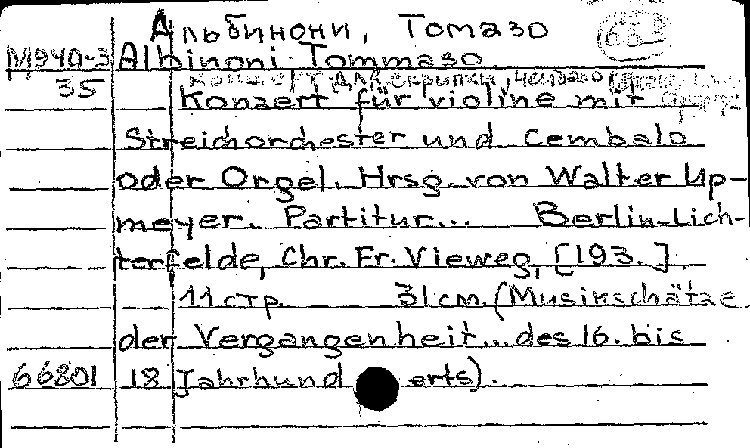 Альбинони, Томазо
М940-3 Albinoni Tommaso.
35 Концерт для скрипки, чембало
Konzert für violine mit
Streichorchester und Cembalo
oder Orgel. Hrsg. von Walter Up-
meyer. Partitur... Berlin-Lich-
terfelde, Chr. Fr. Vieweg, [193.].
11 стр. 31 см. (Musikschätze
der Vergangenheit... des 16. bis
66801 18 Jahrhunderts).